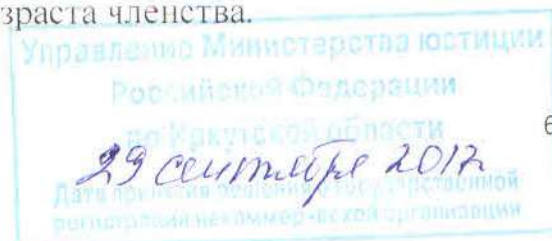 зраста членства.
Управление Министерства юстиции
Российской Федерации
по Иркутской области
6
29 сентября 2017
Дата принятия решения о государственной
регистрации некоммерческой организации